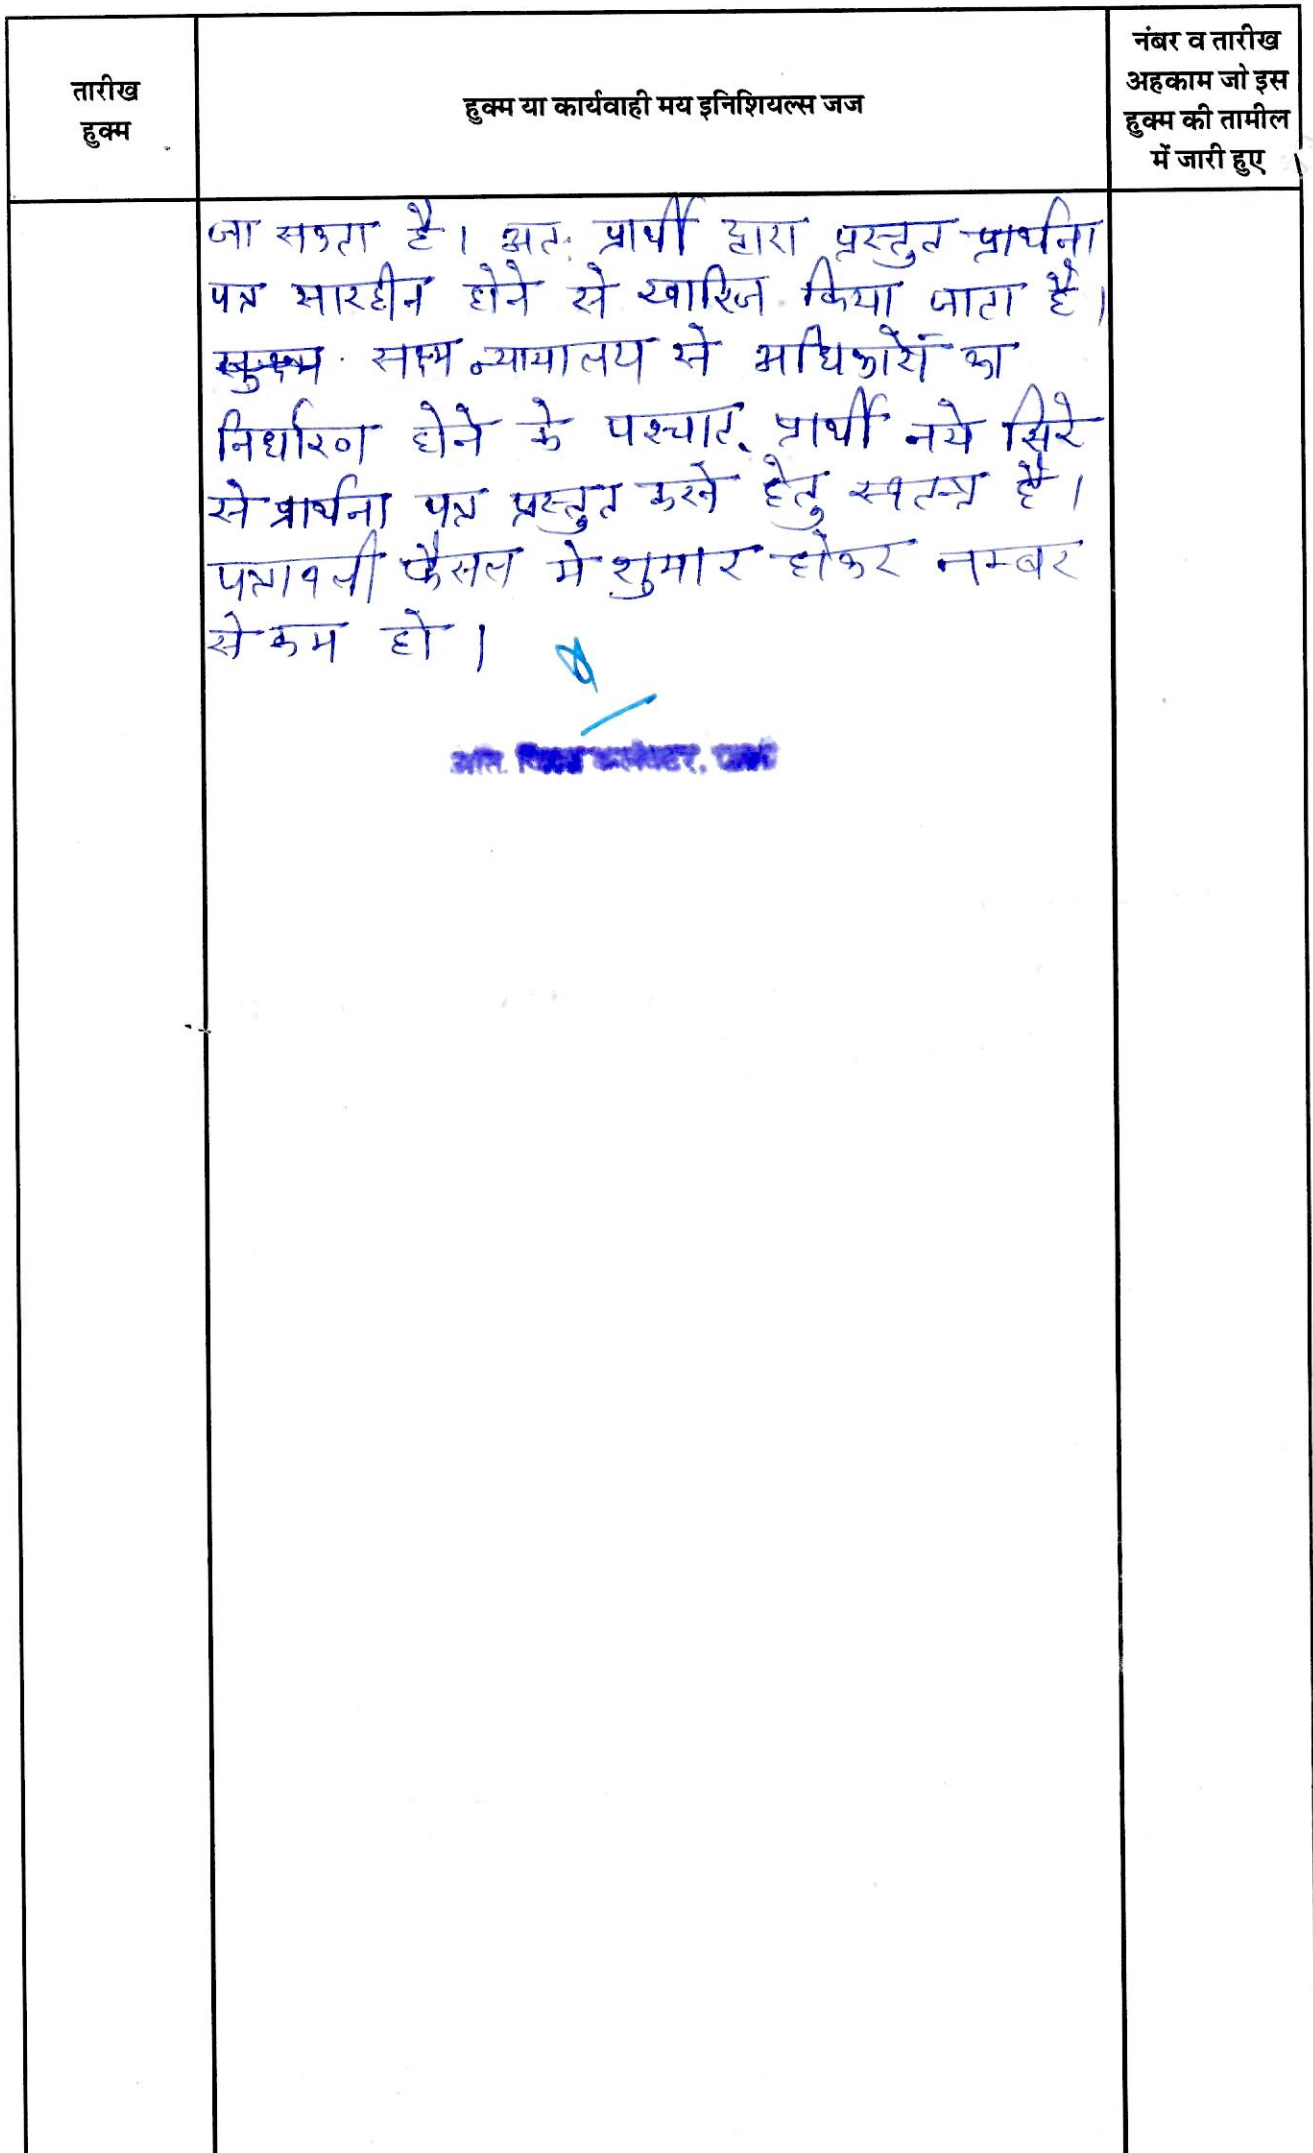 तारीख
हुक्म
हुक्म या कार्यवाही मय इनिशियल्स जज
नंबर व तारीख
अहकाम जो इस
हुक्म की तामील
में जारी हुए
जा सकता है। अतः प्रार्थी द्वारा प्रस्तुत प्रार्थना
पत्र सारहीन होने से खारिज किया जाता है।
सक्षम न्यायालय से अधिकारों का
निर्धारण होने के पश्चात् प्रार्थी नये सिरे
से प्रार्थना पत्र प्रस्तुत करने हेतु स्वतन्त्र है।
पत्रावली फैसल मे शुमार होकर नम्बर
से कम हो।
अति. कलेक्टर,